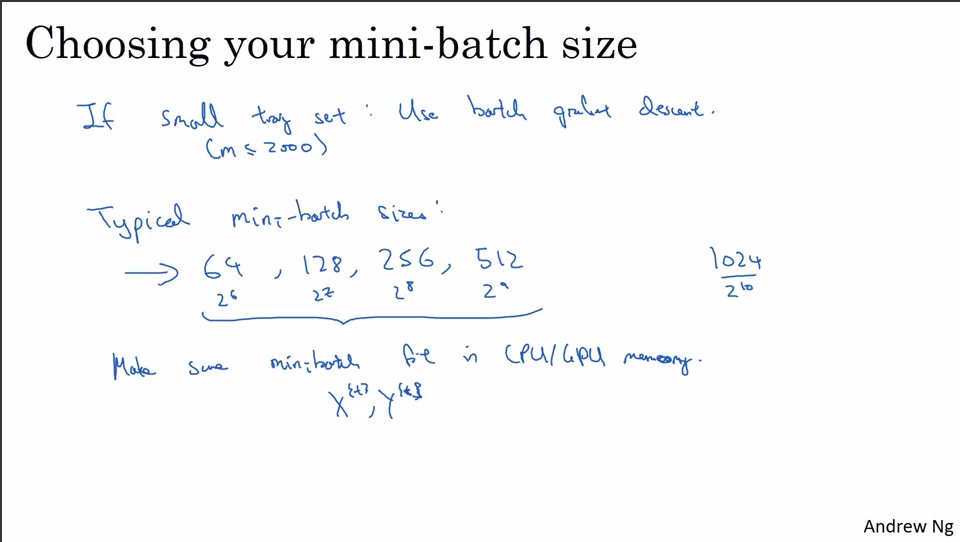 Choosing your mini-batch size
If small trag set : Use batch gradient descent.
(m ≤ 2000)
Typical mini-batch sizes :
→ 64 , 128, 256, 512
2⁶ 2⁷ 2⁸ 2⁹
1024
2¹⁰
Make sure mini-batch fit in CPU/GPU memory.
X^{t}, Y^{t}
Andrew Ng